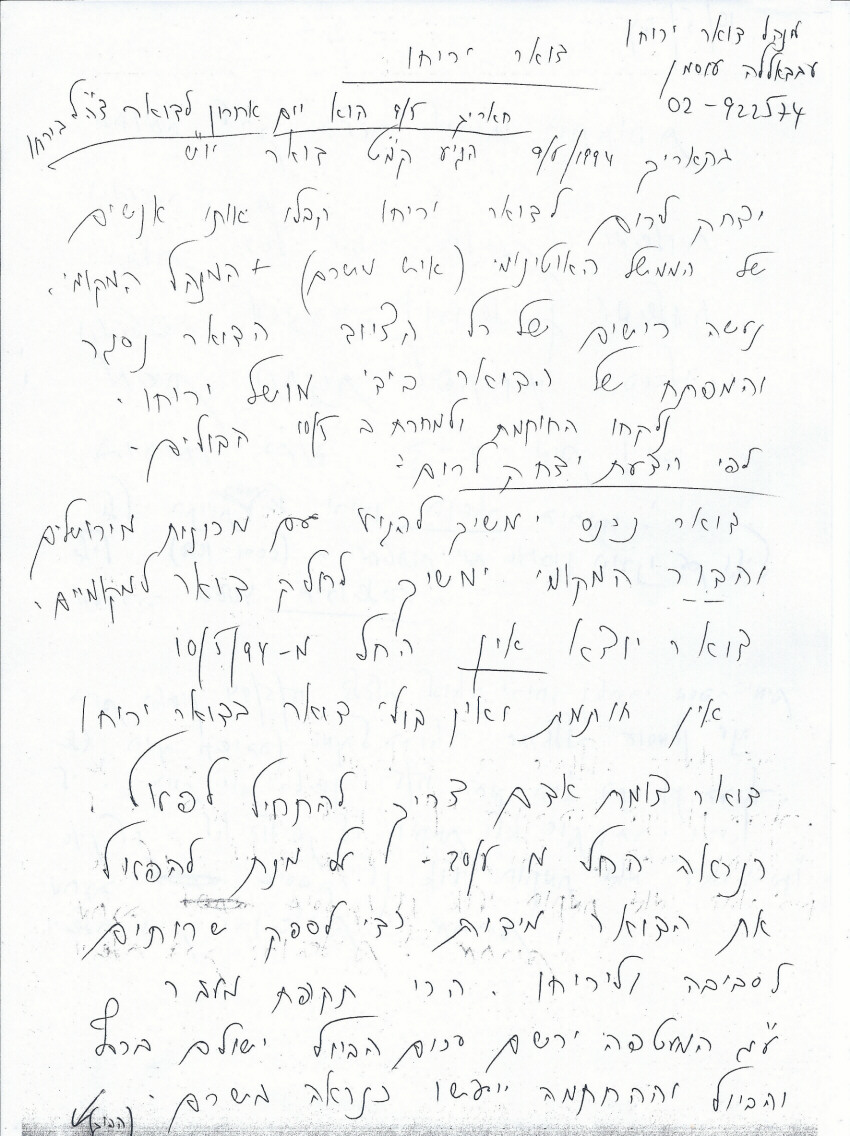 מנהל דואר יריחו
עבדאללה עוסמן
02-922574
דואר יריחו
תאריך 9/5 הוא יום אחרון לדואר צה"ל ביריחו
בתאריך 9/5/1994 הגיע קמ"ט דואר יו"ש
יצחק לרום לדואר יריחו קבלו אותו אנשים
של הממשל האוטונומי (איש משרם) + המנהל המקומי.
נעשה רישום של כל הציוד הדואר נסגר
והמפתח של הדואר בידי מושל יריחו.
נלקחו החותמת ולמחרת ב 10/5 הבולים.
לפי הצעת יצחק לרום:
דואר נכנס ימשיך להגיע עם מכונית מירושלים
והדוור המקומי ימשיך לחלק דואר למקומיים.
דואר יוצא אין החל מ-10/5/94
אין חותמת ואין בולי דואר בדואר יריחו
דואר צומת אדם צריך להתחיל לפעול.
כנראה החל מ 20/5 - על מנת להפעיל
את הדואר כדי לספק שרותים
לסביבה וליריחו. הרי תקופת מעבר
ע"ג המעטפה ירשם סכום הביול ישולם
והביול וההחתמה ייעשו כנראה משרם.